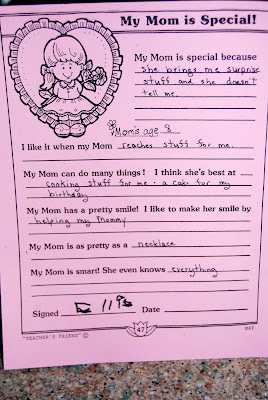 My Mom is Special!
My Mom is special because
she brings me surprise
stuff and she doesn't
tell me.
Mom's age 8
I like it when my Mom reaches stuff for me.
My Mom can do many things! I think she's best at
cooking stuff for me - a cake for my
birthday
My Mom has a pretty smile! I like to make her smile by
helping my Mommy
My Mom is as pretty as a necklace
My Mom is smart! She even knows everything
Signed Date
47
"TEACHER'S FRIEND" © MAY